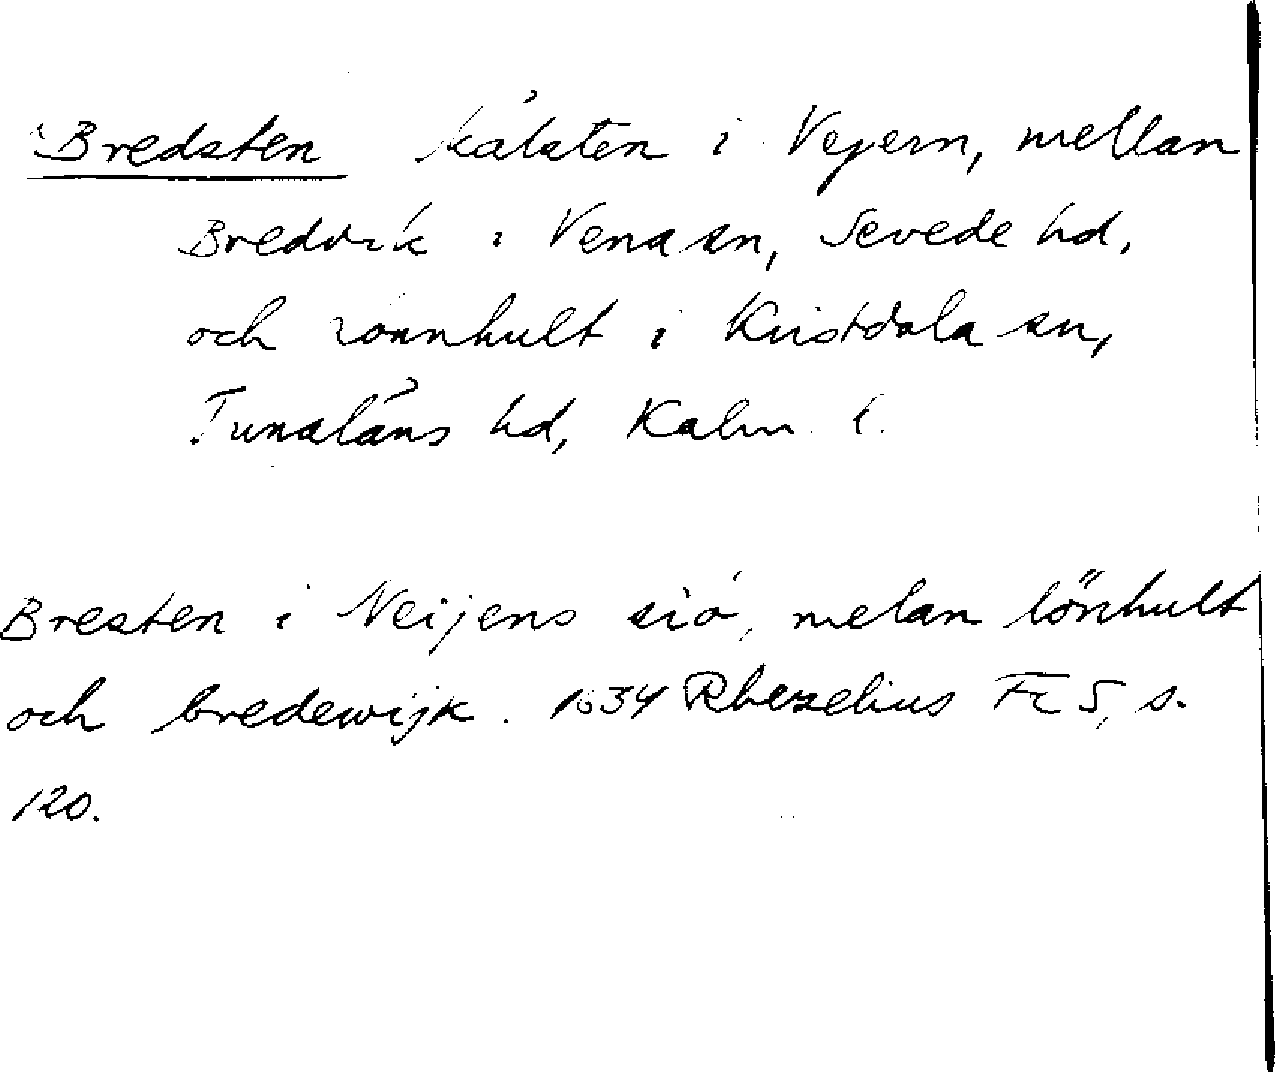 Bredsten råsten i Vejern, mellan
Bredvik i Vena sn, Sevede hd,
och Lönnhult i Kristdala sn,
Tunaläns hd, Kalm. l.
Bresten i Neijens siö, melan lönhult
och bredewijk. 1634 Rhezelius Fc 5, s.
120.